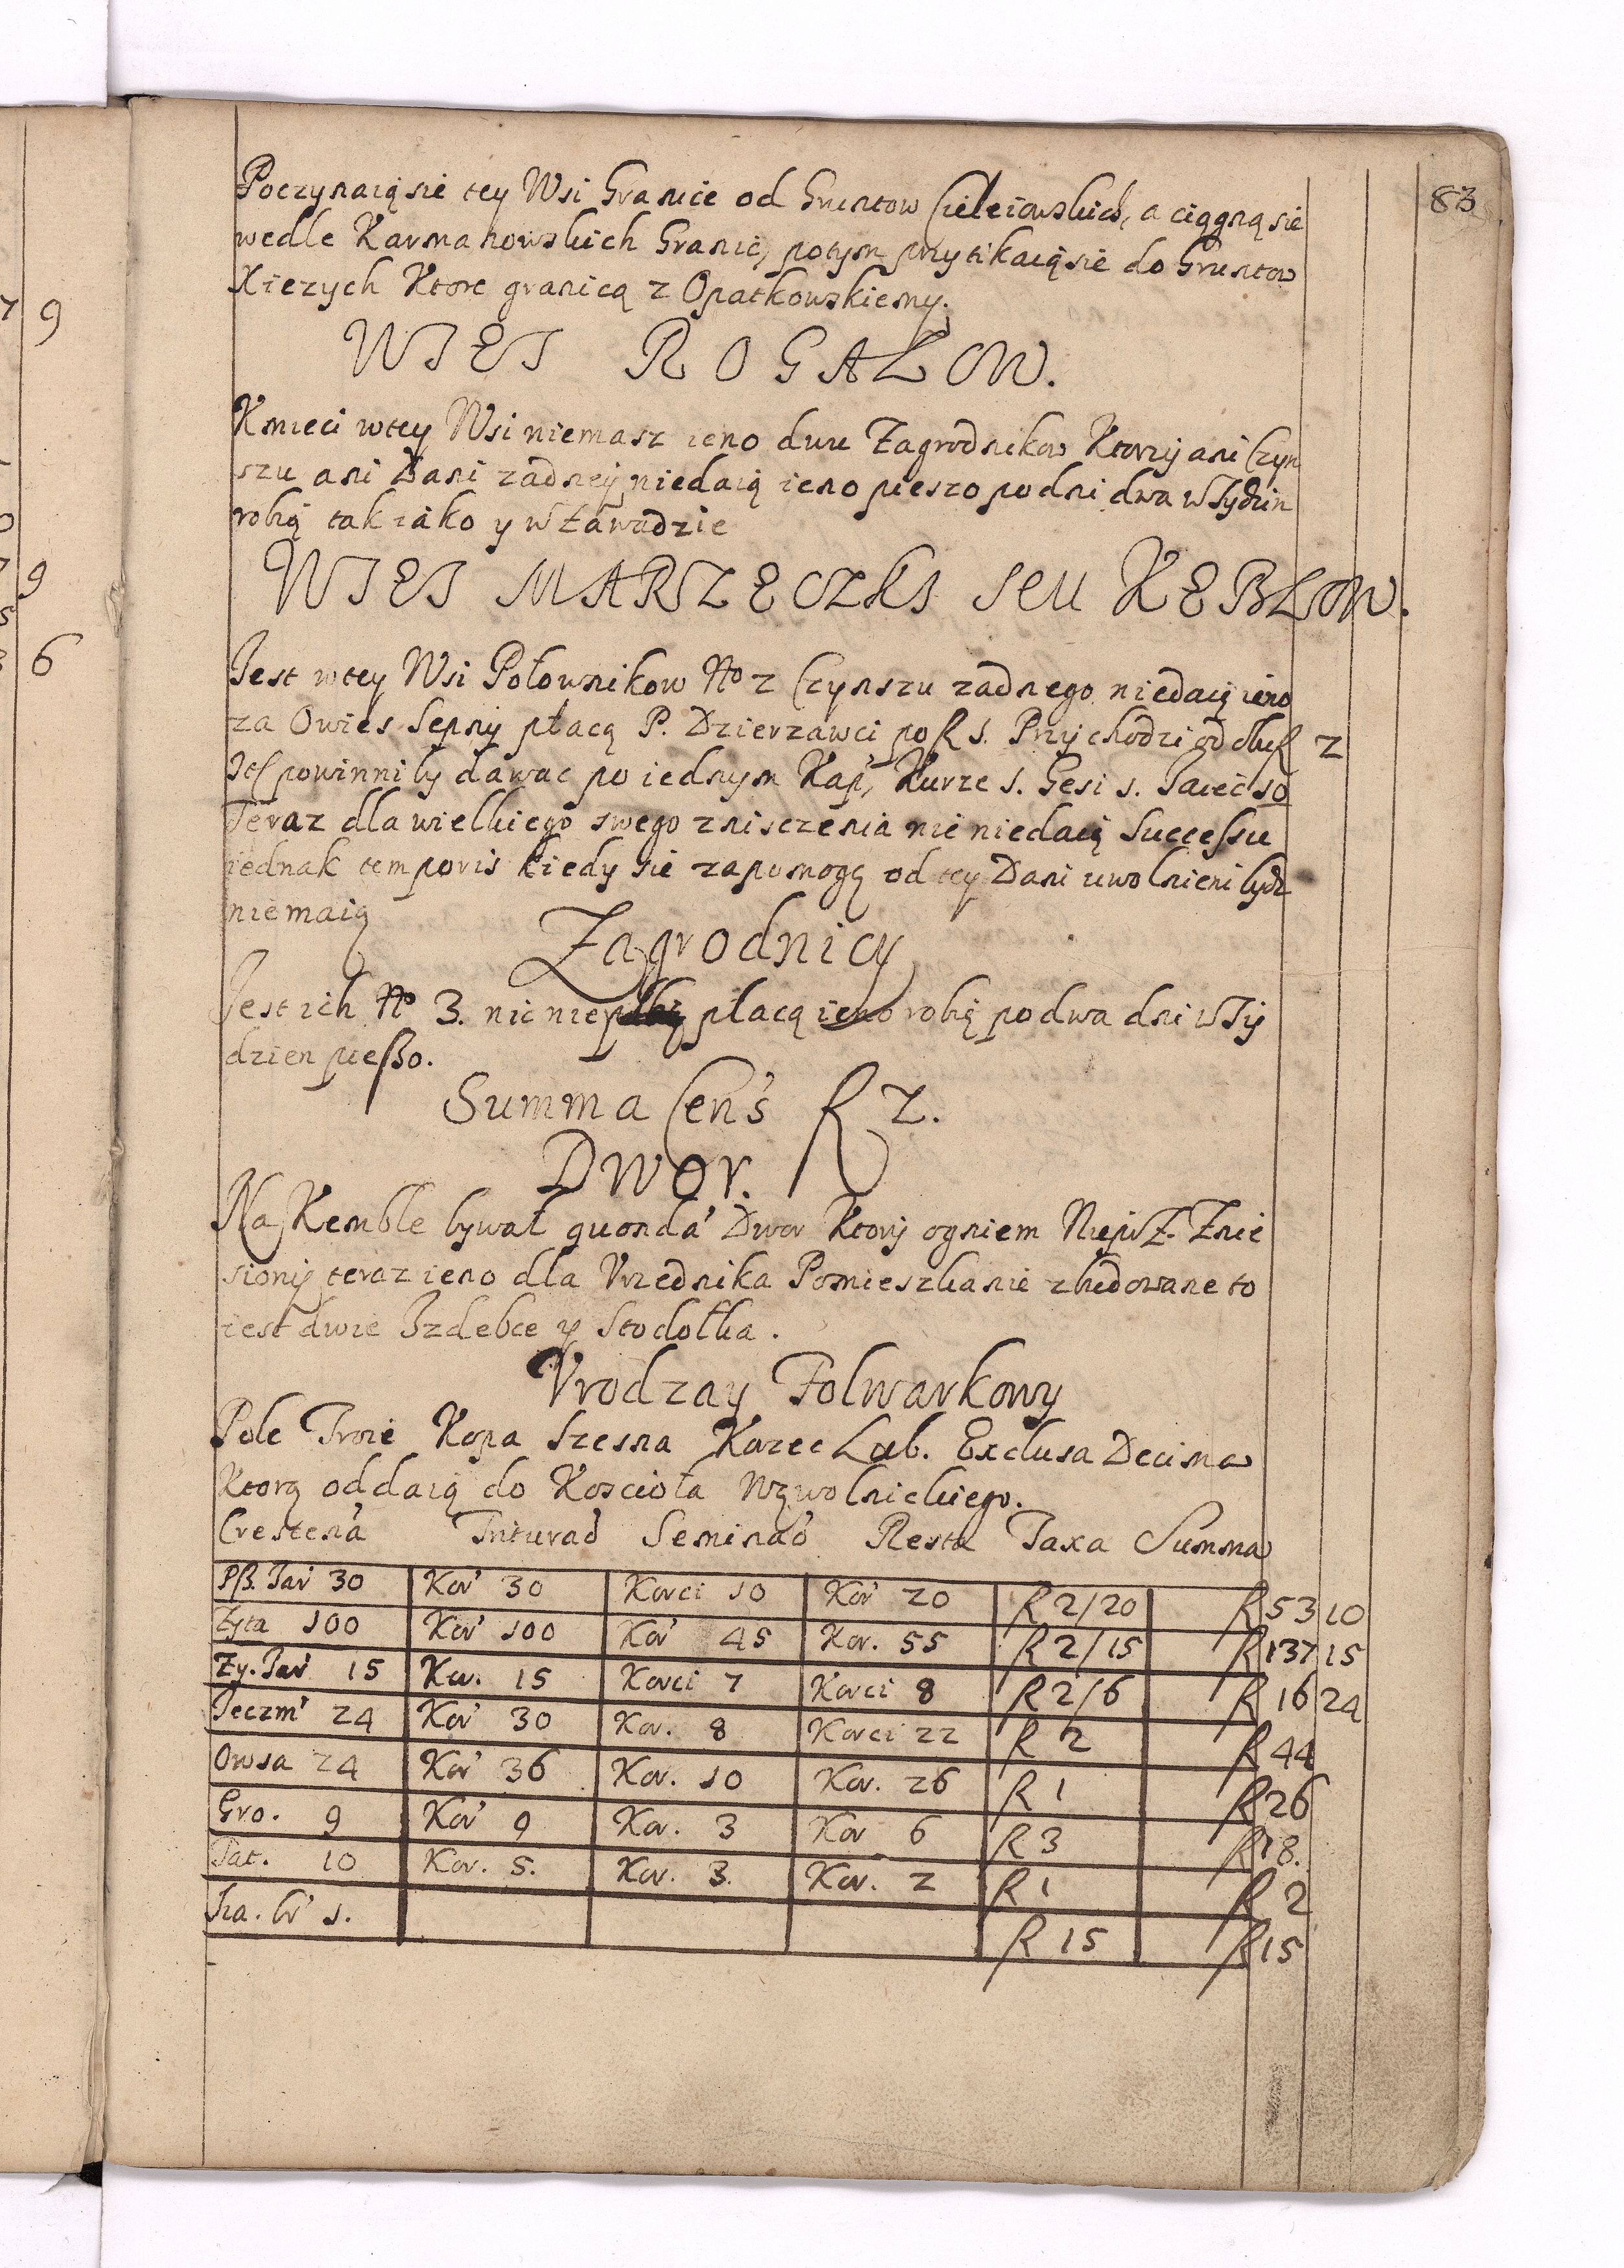 83
Poczynaią sie tey Wsi Granice od Gruntow Cieleiowskich, a ciągną sie
wedle Karmanowskich Granic, potym przytikaią sie do Gruntow
Xiezych Ktore granicą z Opatkowskiemy.
WIES ROGALOW.
Kmieci wtey Wsi niemasz ieno dwu Zagrodnikow Ktorzy ani Czyn
szu ani Dani zadney niedaią ieno pieszo po dni dwa w Tydzin
robią tak iako y w Zawadzie
WIES MARZECZKI SEU KEBLOW.
Jest wtey Wsi Połownikow No 2 Czynszu zadnego niedaią ieno
za Owies Sepny płacą P. Dzierzawci po f 1. Przychodzi od dwu f 2
Ite powinni by dawac po iednym Kap, Kurze 1. Gesi 1. Jaiec 10
Teraz dla wielkiego swego zniszczenia nic niedaią Successu
iednak temporis kiedy sie zapomogą od tey Dani uwolnieni bydz
niemaią
Zagrodnicy
Jest ich No 3. nic nie płacą ieno robią po dwa dni w Ty
dzien pießo.
Summa Cens f 2.
Dwor.
Na Kemble bywał quonda Dwor Ktory ogniem Znie
siony teraz ieno dla Vrzednika Pomieszkanie zbudowane to
iest dwie Izdebce y Stodołka.
Vrodzay Folwarkowy
Pole Troie Kopa Szesna Korzec Lub. Exclusa Decima
Ktorą oddaią do Koscioła Wąwolnickiego.
Crestena Triturao Seminao Resta Taxa Summa
Pß. Jar 30 Kor 30 Korci 10 Kor 20 f 2/20 f 53 10
Zyta 100 Kor 100 Kor 45 Kor. 55 f 2/15 f 137 15
Zy. Jar 15 Kor. 15 Korci 7 Korci 8 f 2/6 f 16 24
Jeczm 24 Kor 30 Kor. 8 Korci 22 f 2 f 44
Owsa 24 Kor 36 Kor. 10 Kor. 26 f 1 f 26
Gro. 9 Kor 9 Kor. 3 Kor 6 f 3 f 18.
Tat. 10 Kor. 5. Kor. 3. Kor. 2 f 1 f 2
Sia. br 1. f 15 f 15
7 9
9
6